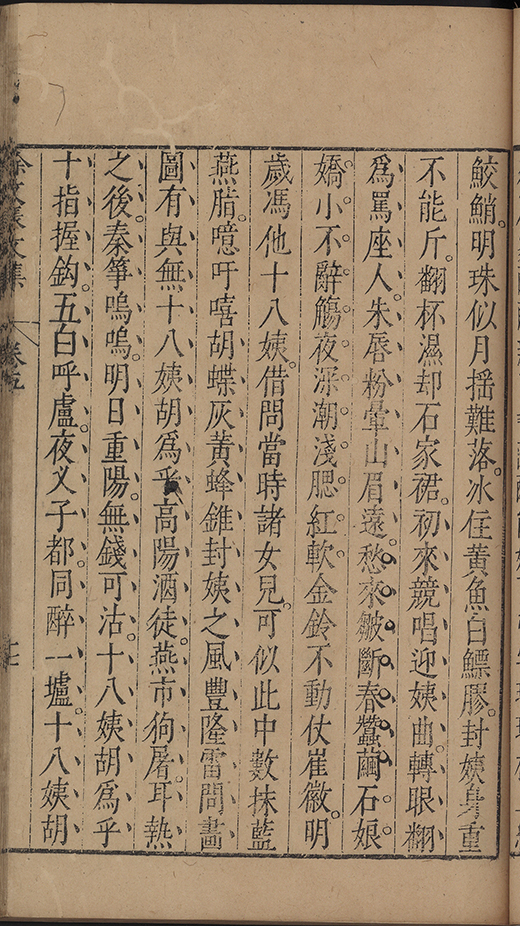 鮫鮹。明珠似月揺難落。冰住黄魚白鰾膠。封姨身重
不能斤。翻杯濕却石家裙。初來競唱迎姨曲。轉眼翻
爲罵座人。朱唇粉暈山眉遠。愁來皺斷春蠶繭。石娘
嬌小不辭觴。夜深潮淺腮紅軟。金鈴不動仗崔徽。明
歲馮他十八姨。借問當時諸女兒。可似此中數抹藍
燕脂。噫吁嘻。胡蝶灰黃蜂錐。封姨之風豐隆雷。問畵
圖有與無。十八姨胡爲乎。高陽酒徒。燕市狗屠。耳熱
之後。秦箏嗚嗚。明日重陽。無錢可沽。十八姨胡爲乎
十指握鈎。五白呼盧。夜义子都。同醉一壚。十八姨胡
徐文長文集
卷五